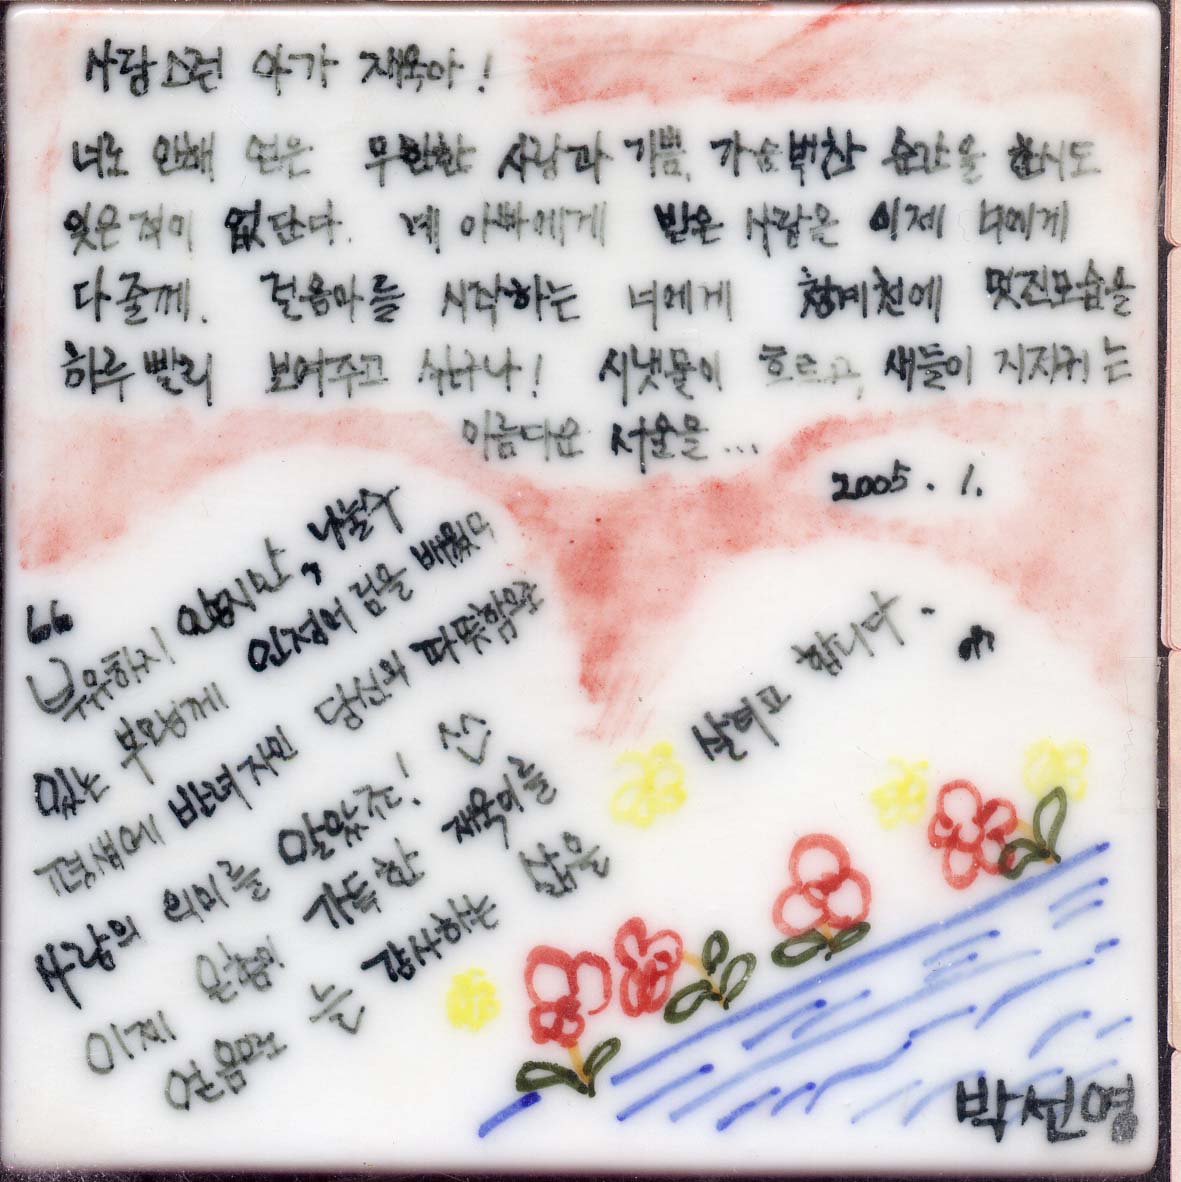 사랑스런 아가 재욱아!
너로 인해 얻은 무한한 사랑과 기쁨, 가슴벅찬 순간을 한시도
잊은 적이 없단다. 네 아빠에게 받은 사랑을 이제 너에게
다 줄께. 걸음마를 시작하는 너에게 청계천에 멋진모습을
하루 빨리 보여주고 싶구나! 시냇물이 흐르고, 새들이 지저귀는
아름다운 서울을...
2005. 1.
“부유하지 않지만, 나눌수
있는 부모님께 인정어림을 배웠고
평생에 반려자인 당신의 따뜻함으로
사랑의 의미를 알았죠! ^^
이제 은총이 가득한 재욱이를
얻음으로 늘 감사하는 삶을
살려고 합니다.”
박선영